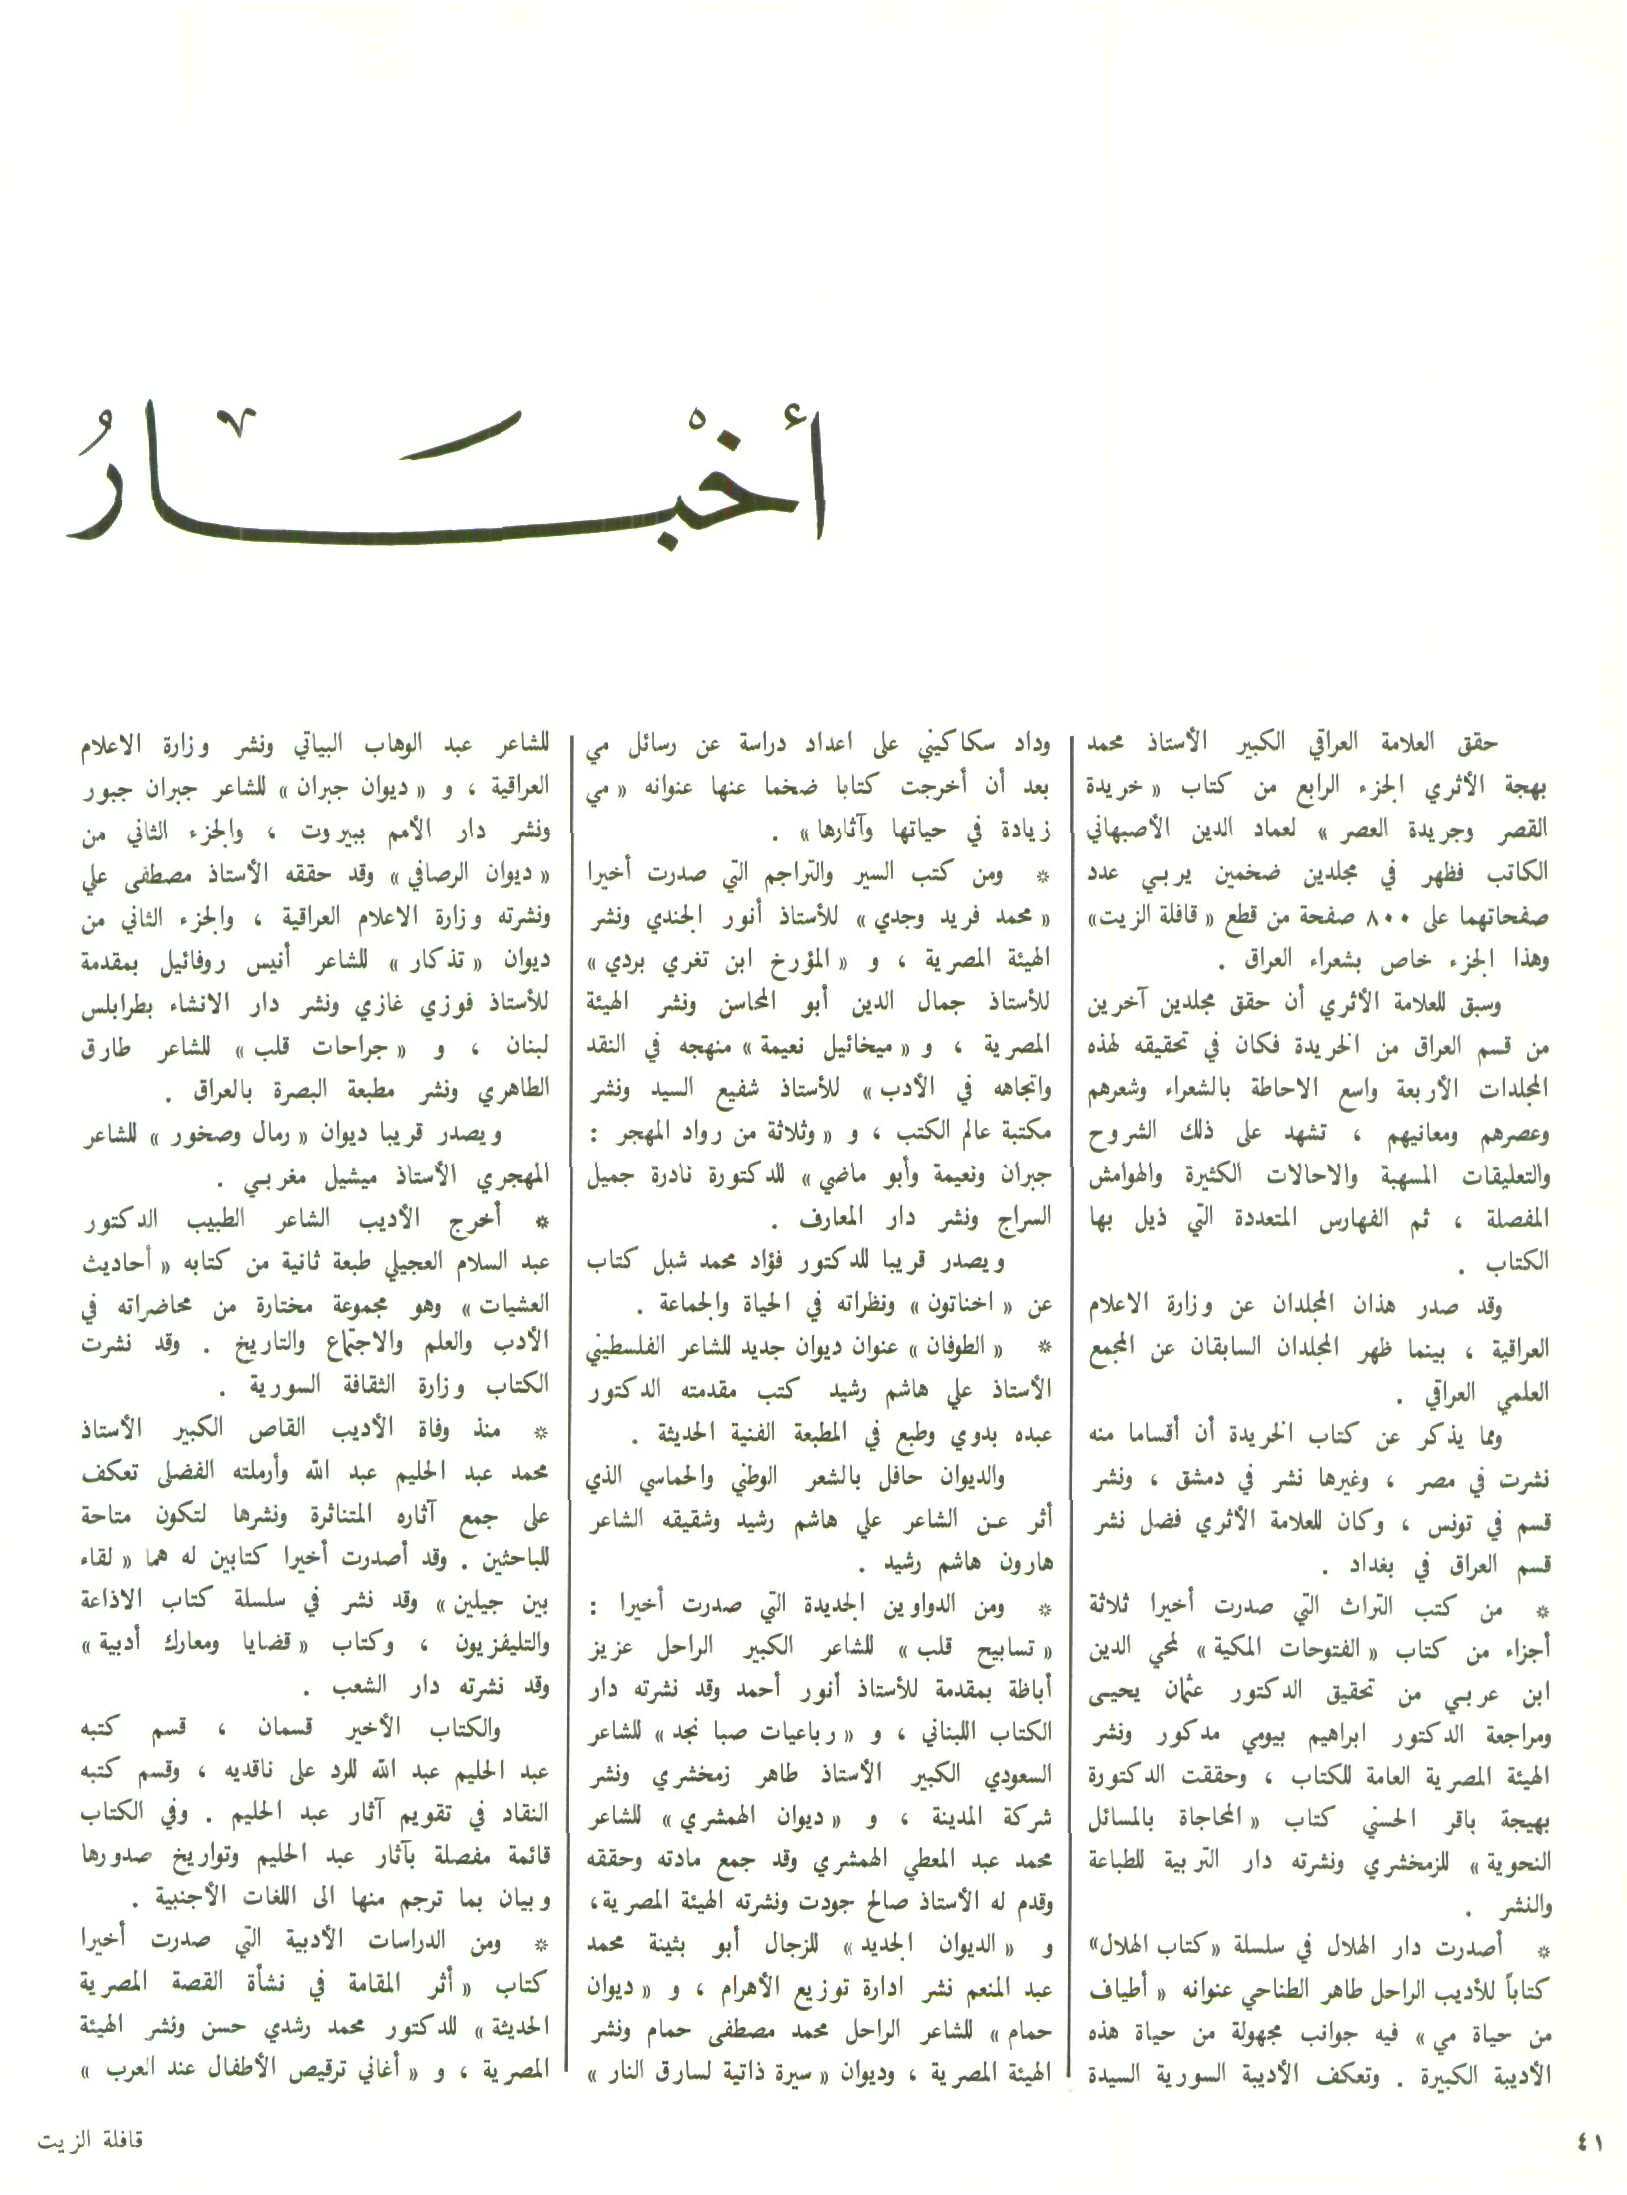 أخْبَارُ
حقق العلامة العراقي الكبير الأستاذ محمد
بهجة الأثري الجزء الرابع من كتاب « خريدة
القصر وجريدة العصر » لعماد الدين الأصبهاني
الكاتب فظهر في مجلدين ضخمين يربي عدد
صفحاتهما على ٨٠٠ صفحة من قطع « قافلة الزيت»
وهذا الجزء خاص بشعراء العراق .
وسبق للعلامة الأثري أن حقق مجلدين آخرين
من قسم العراق من الخريدة فكان في تحقيقه لهذه
المجلدات الأربعة واسع الاحاطة بالشعراء وشعرهم
وعصرهم ومعانيهم ، تشهد على ذلك الشروح
والتعليقات المسهبة والاحالات الكثيرة والهوامش
المفصلة ، ثم الفهارس المتعددة التي ذيل بها
الكتاب .
وقد صدر هذان المجلدان عن وزارة الاعلام
العراقية ، بينما ظهر المجلدان السابقان عن المجمع
العلمي العراقي .
ومما يذكر عن كتاب الخريدة أن أقساما منه
نشرت في مصر ، وغيرها نشر في دمشق ، ونشر
قسم في تونس ، وكان للعلامة الأثري فضل نشر
قسم العراق في بغداد .
* من كتب التراث التي صدرت أخيرا ثلاثة
أجزاء من كتاب « الفتوحات المكية » لمحي الدين
ابن عربي من تحقيق الدكتور عثمان يحيى
ومراجعة الدكتور ابراهيم بيومي مدكور ونشر
الهيئة المصرية العامة للكتاب ، وحققت الدكتورة
بهيجة باقر الحسني كتاب « المحاجاة بالمسائل
النحوية » للزمخشري ونشرته دار التربية للطباعة
والنشر .
* أصدرت دار الهلال في سلسلة «كتاب الهلال»
كتاباً للأديب الراحل طاهر الطناحي عنوانه « أطياف
من حياة مي » فيه جوانب مجهولة من حياة هذه
الأديبة الكبيرة . وتعكف الأديبة السورية السيدة
وداد سكاكيني على اعداد دراسة عن رسائل مي
بعد أن أخرجت كتابا ضخما عنها عنوانه « مي
زيادة في حياتها وآثارها » .
* ومن كتب السير والتراجم التي صدرت أخيرا
« محمد فريد وجدي » للأستاذ أنور الجندي ونشر
الهيئة المصرية ، و « المؤرخ ابن تغري بردي »
للأستاذ جمال الدين أبو المحاسن ونشر الهيئة
المصرية ، و « ميخائيل نعيمة » منهجه في النقد
واتجاهه في الأدب » للأستاذ شفيع السيد ونشر
مكتبة عالم الكتب ، و « وثلاثة من رواد المهجر :
جبران ونعيمة وأبو ماضي » للدكتورة نادرة جميل
السراج ونشر دار المعارف .
ويصدر قريبا للدكتور فؤاد محمد شبل كتاب
عن « اخناتون » ونظراته في الحياة والجماعة .
* « الطوفان » عنوان ديوان جديد للشاعر الفلسطيني
الأستاذ علي هاشم رشيد كتب مقدمته الدكتور
عبده بدوي وطبع في المطبعة الفنية الحديثة .
والديوان حافل بالشعر الوطني والحماسي الذي
أثر عن الشاعر علي هاشم رشيد وشقيقه الشاعر
هارون هاشم رشيد .
* ومن الدواوين الجديدة التي صدرت أخيرا :
« تسابيح قلب » للشاعر الكبير الراحل عزيز
أباظة بمقدمة للأستاذ أنور أحمد وقد نشرته دار
الكتاب اللبناني ، و « رباعيات صبا نجد » للشاعر
السعودي الكبير الأستاذ طاهر زمخشري ونشر
شركة المدينة ، و « ديوان الهمشري » للشاعر
محمد عبد المعطي الهمشري وقد جمع مادته وحققه
وقدم له الأستاذ صالح جودت ونشرته الهيئة المصرية،
و « الديوان الجديد » للزجال أبو بثينة محمد
عبد المنعم نشر ادارة توزيع الأهرام ، و « ديوان
حمام » للشاعر الراحل محمد مصطفى حمام ونشر
الهيئة المصرية ، وديوان « سيرة ذاتية لسارق النار »
للشاعر عبد الوهاب البياتي ونشر وزارة الاعلام
العراقية ، و « ديوان جبران » للشاعر جبران جبور
ونشر دار الأمم ببيروت ، والجزء الثاني من
« ديوان الرصافي » وقد حققه الأستاذ مصطفى علي
ونشرته وزارة الاعلام العراقية ، والجزء الثاني من
ديوان « تذكار » للشاعر أنيس روفائيل بمقدمة
للأستاذ فوزي غازي ونشر دار الانشاء بطرابلس
لبنان ، و « جراحات قلب » للشاعر طارق
الطاهري ونشر مطبعة البصرة بالعراق .
ويصدر قريبا ديوان « رمال وصخور » للشاعر
المهجري الأستاذ ميشيل مغربي .
* أخرج الأديب الشاعر الطبيب الدكتور
عبد السلام العجيلي طبعة ثانية من كتابه « أحاديث
العشيات » وهو مجموعة مختارة من محاضراته في
الأدب والعلم والاجتماع والتاريخ . وقد نشرت
الكتاب وزارة الثقافة السورية .
* منذ وفاة الأديب القاص الكبير الأستاذ
محمد عبد الحليم عبد الله وأرملته الفضلى تعكف
على جمع آثاره المتناثرة ونشرها لتكون متاحة
للباحثين . وقد أصدرت أخيرا كتابين له هما « لقاء
بين جيلين » وقد نشر في سلسلة كتاب الاذاعة
والتليفزيون ، وكتاب « قضايا ومعارك أدبية »
وقد نشرته دار الشعب .
والكتاب الأخير قسمان ، قسم كتبه
عبد الحليم عبد الله للرد على ناقديه ، وقسم كتبه
النقاد في تقويم آثار عبد الحليم . وفي الكتاب
قائمة مفصلة بآثار عبد الحليم وتواريخ صدورها
وبيان بما ترجم منها الى اللغات الأجنبية .
* ومن الدراسات الأدبية التي صدرت أخيرا
كتاب « أثر المقامة في نشأة القصة المصرية
الحديثة » للدكتور محمد رشدي حسن ونشر الهيئة
المصرية ، و « أغاني ترقيص الأطفال عند العرب »
٤١
قافلة الزيت